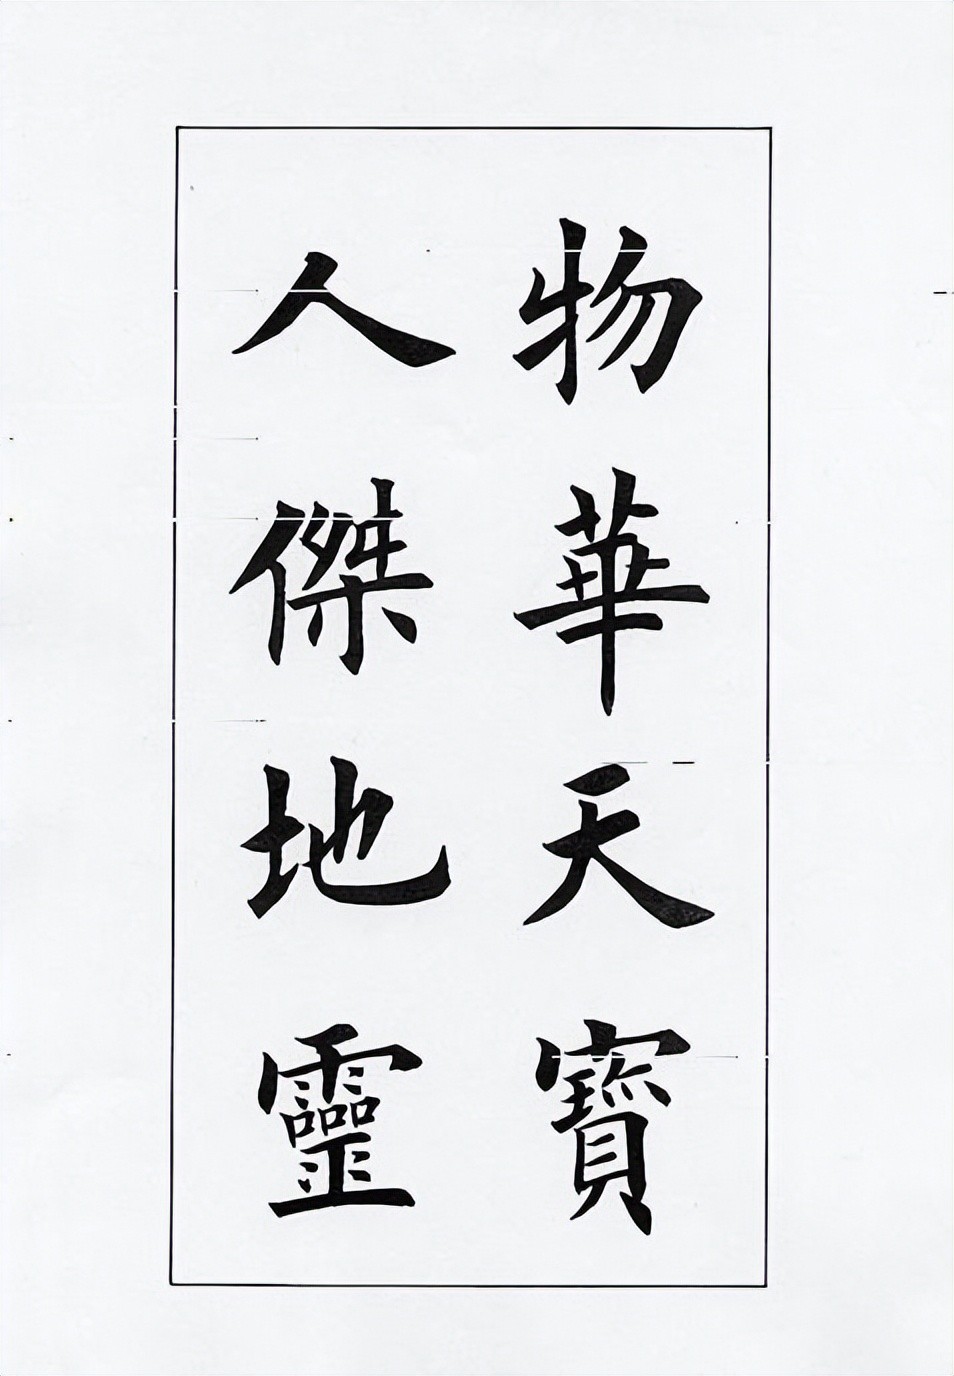 物華天寶
人傑地靈